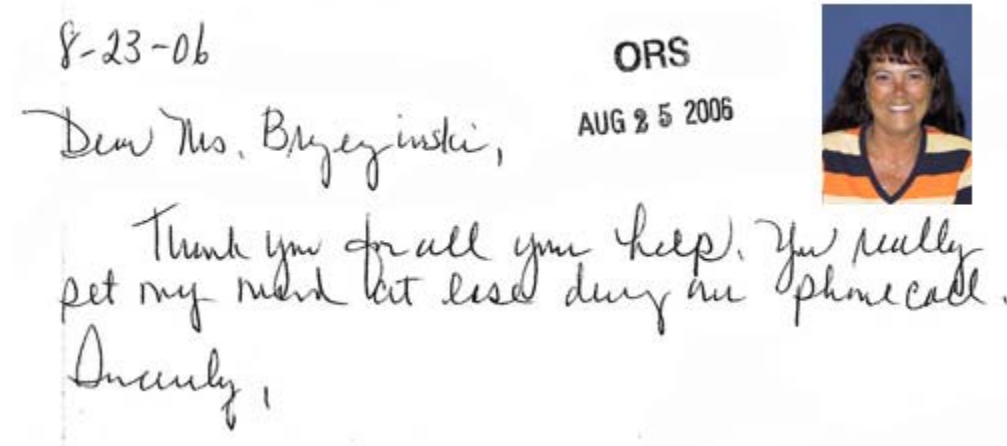 8-23-06
ORS
AUG 25 2006
Dear Ms. Bryezinski,
Thank you for all your help. You really
set my mind at ease during our phone call.
Sincerely,